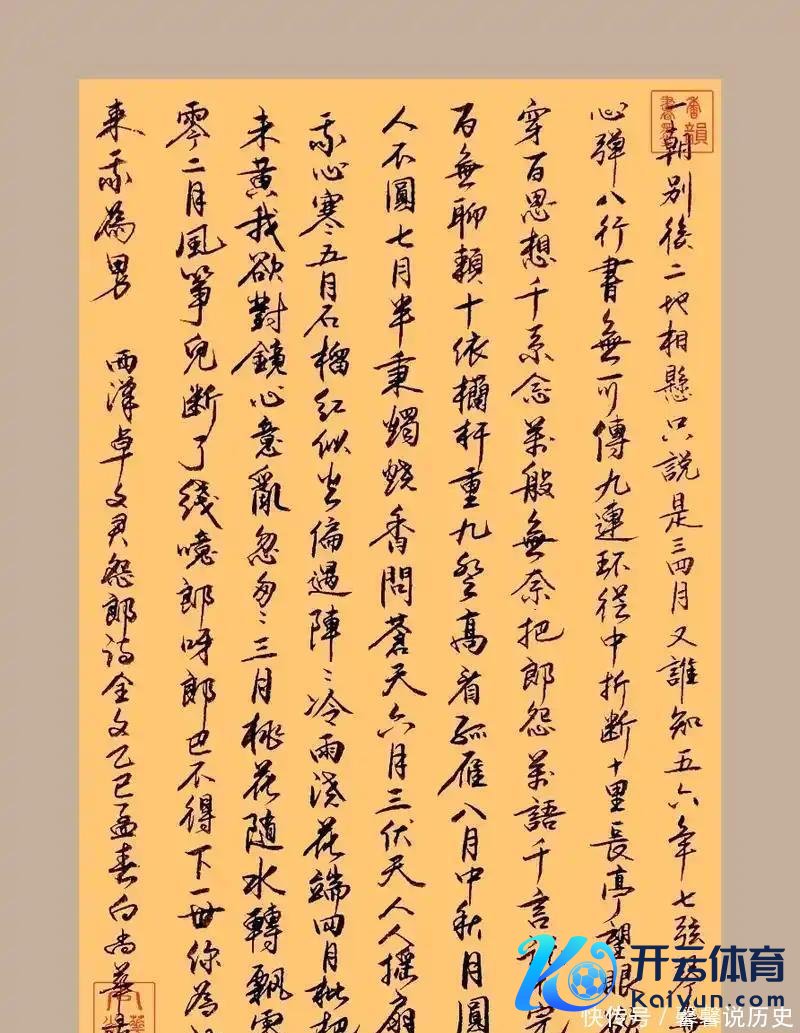 一朝别後二地相懸只説是三四月又誰知五六年七弦琴
心彈八行書無可傳九連環從中折斷十里長亭望眼
穿百思想千系念萬般無奈把郎怨萬語千言
百無聊賴十依欄杆重九登高看孤雁八月中秋月圓
人不圓七月半秉燭燒香問蒼天六月三伏天人人摇扇
我心寒五月石榴紅似火偏遇陣々冷雨澆花端四月枇杷
未黄我欲對鏡心意亂忽匆々三月桃花随水轉飄零
零二月風箏兒断了綫噫郎呀郎巴不得下一世你為
来我為男 西漢卓文君怨郎詩全文乙巳孟春白尚華
开云体育
Kaiyun.com
快传号/馨馨说历史